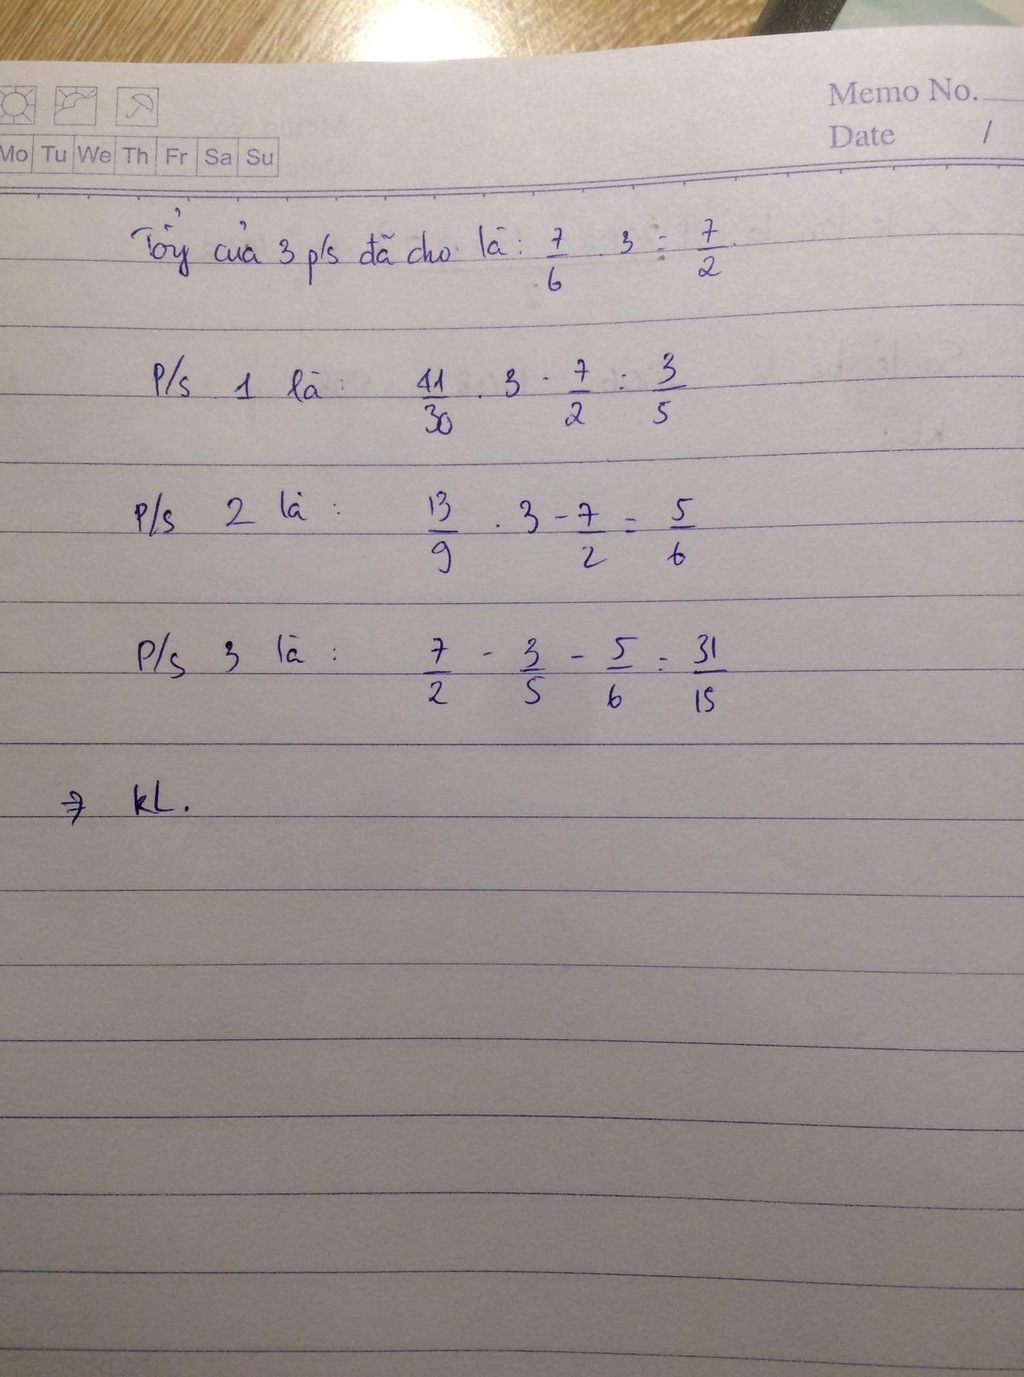 Memo No.
Date /
Mo Tu We Th Fr Sa Su
Tổng của 3 p/s đã cho là: 7/6 . 3 = 7/2
P/s 1 là: 41/30 . 3 - 7/2 = 3/5
P/s 2 là: 13/9 . 3 - 7/2 = 5/6
P/s 3 là: 7/2 - 3/5 - 5/6 = 31/15
=> kL.